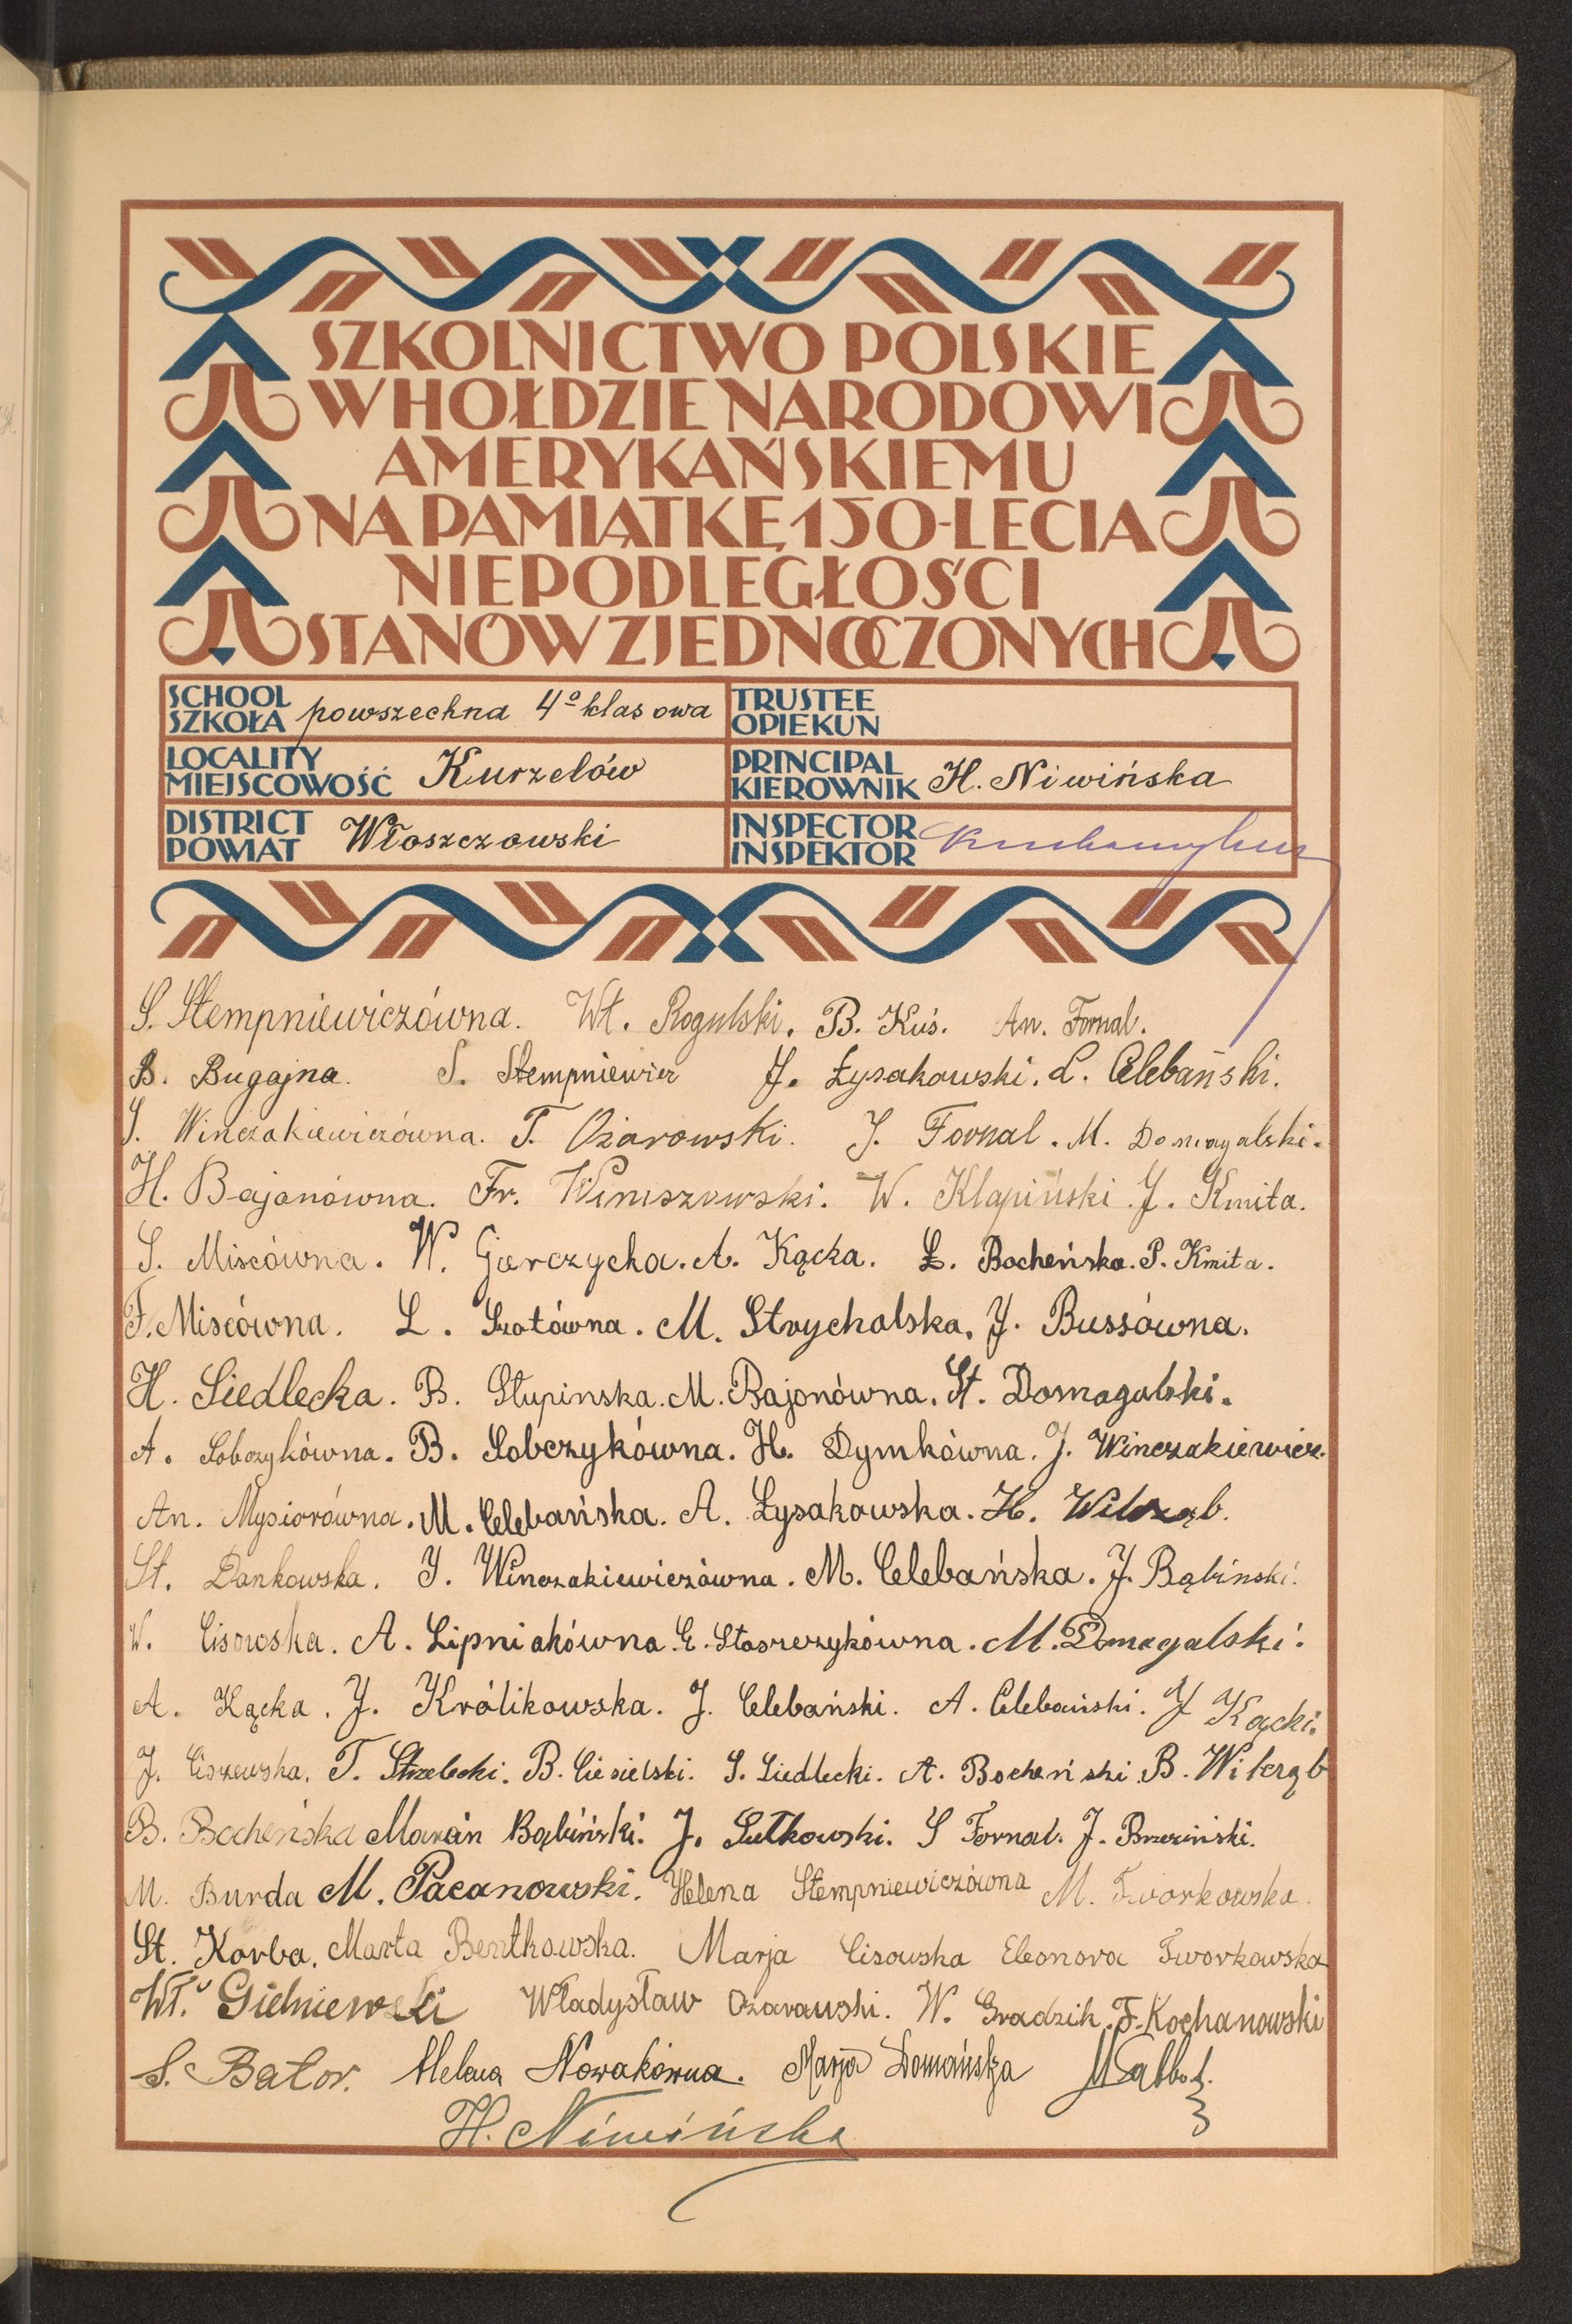 SZKOLNICTWO POLSKIE
W HOŁDZIE NARODOWI
AMERYKAŃSKIEMU
NA PAMIĄTKĘ 150-LECIA
NIEPODLEGŁOŚCI
STANÓW ZJEDNOCZONYCH
SCHOOL
SZKOŁA powszechna 4º klasowa
TRUSTEE
OPIEKUN
LOCALITY
MIEJSCOWOŚĆ Kurzelów
PRINCIPAL
KIEROWNIK H. Niwińska
DISTRICT
POWIAT Włoszczowski
INSPECTOR
INSPEKTOR
S. Stempniewiczówna. Wł. Rogulski. B. Kuś. An. Fornal.
B. Bugajna. S. Stempniewicz J. Łysakowski. L. Celebański.
S. Winczakiewiczówna. T. Ożarowski. J. Fornal. M. Domagalski.
H. Bajonówna. Fr. Winiszowski. W. Klapiński. J. Kmita.
S. Miscówna. W. Garczycha. A. Kącka. Ł. Bocheńska. P. Kmita.
F. Miscówna. L. Szotówna. M. Strychalska. J. Bussówna.
H. Siedlecka. B. Słupinska. M. Bajonówna. St. Domagalski.
A. Sobczykówna. B. Sobczykówna. H. Dymkówna. J. Winczakiewicz.
An. Mysiorówna. M. Celebańska. A. Łysakowska. H. Wilcząb.
St. Dankowska. J. Winczakiewiczówna. M. Celebańska. J. Bąbinski.
W. Cisowska. A. Lipniakówna. E. Stoszczykówna. M. Domagalski.
A. Kącka. J. Królikowska. J. Celebański. A. Celebański. J Kącki.
J. Ciszewska. T. Strzelecki. B. Ciesielski. S. Siedlecki. A. Bocheński. B. Wilcząb
B. Bocheńska Marcin Bąbiński. J. Sutkowski. S Fornal. J. Brzeziński.
M. Burda M. Pacanowski. Helena Stempniewiczówna M. Tworkowska.
St. Korba. Marta Bentkowska. Marja Cisowska Eleonora Tworkowska
Wł. Gielniewski Władysław Ożarowski. W. Gradzik. F. Kochanowski
S. Bator. Helena Nowakówna. Marja Domańska
H. Niwińska